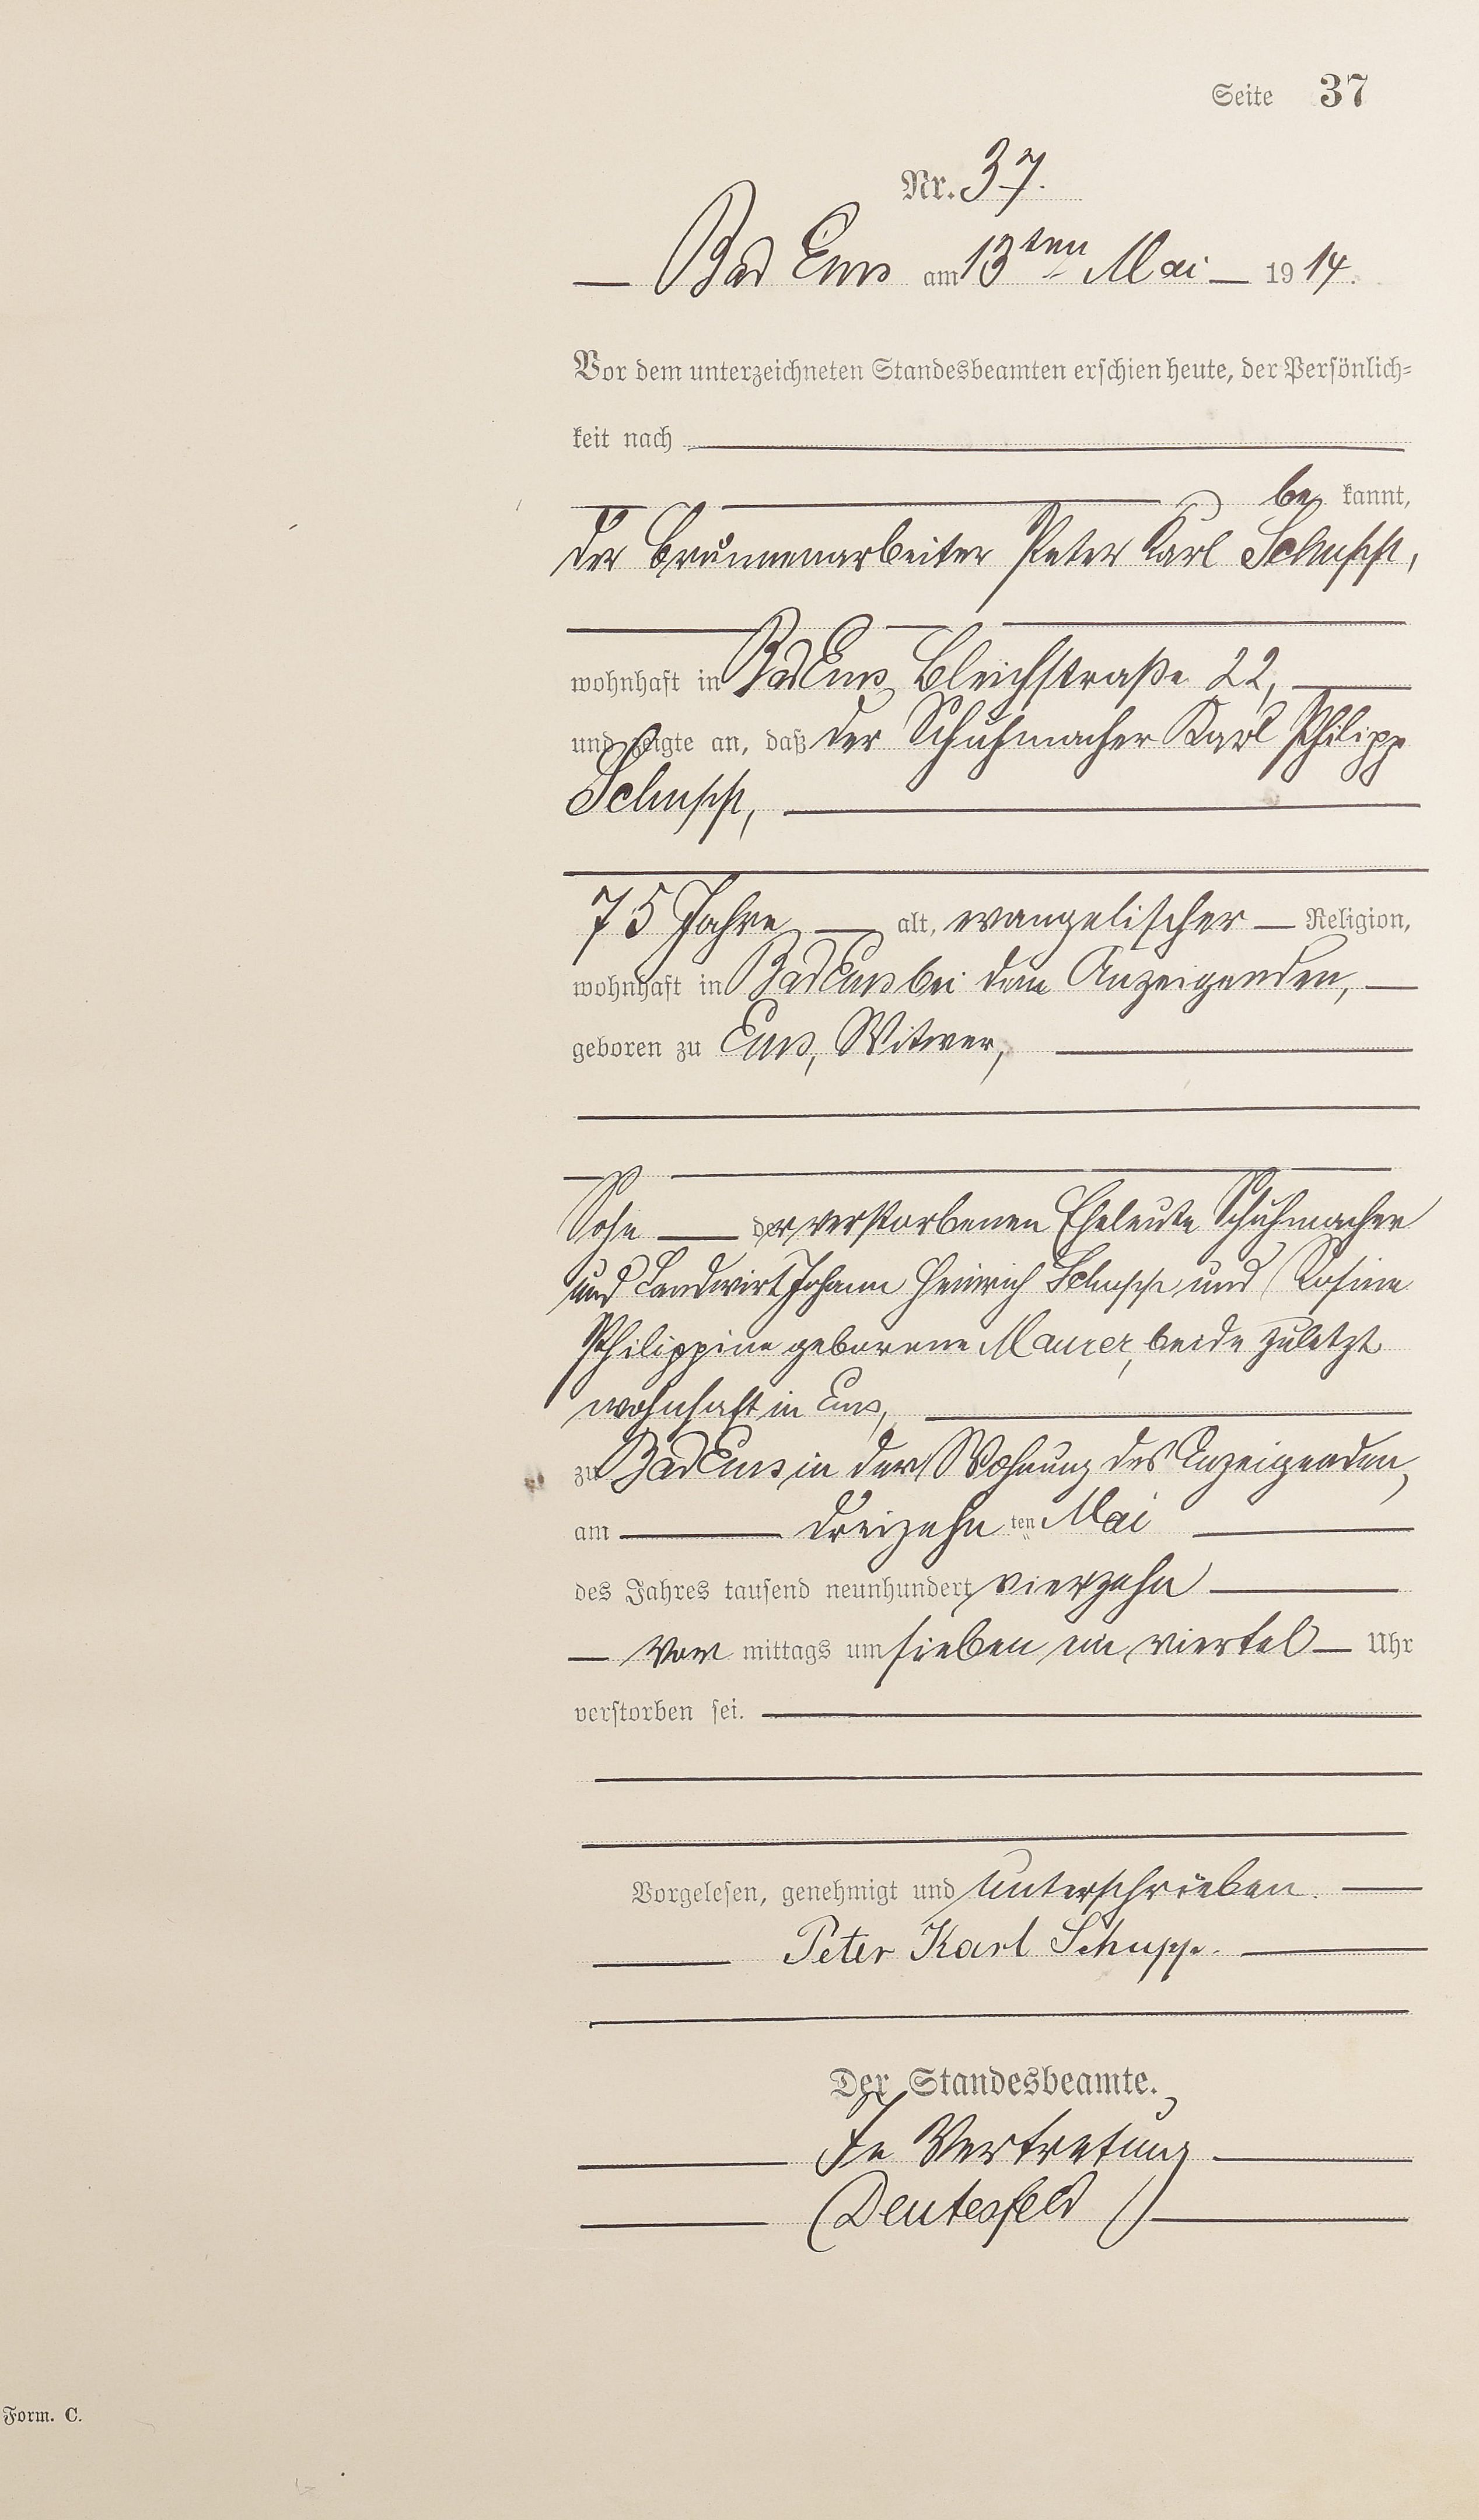 Seite 37
Nr. 37.
Bad Ems am 13ten Mai 1914.
Vor dem unterzeichneten Standesbeamten erschien heute, der Persönlich-
keit nach
be kannt,
der Brunnenarbeiter Peter Karl Schupp,
wohnhaft in Bad Ems, Bleichstraße 22,
und zeigte an, daß der Schuhmacher Karl Philipp
Schupp,
75 Jahre alt, evangelischer Religion,
wohnhaft in Bad Ems bei dem Anzeigenden,
geboren zu Ems, Witwer,
Sohn der verstorbenen Eheleute Schuhmacher
und Landwirt Johann Heinrich Schupp und Rosine
Philippine geborene Maurer, beide zuletzt
wohnhaft in Ems,
zu Bad Ems in der Wohnung des Anzeigenden,
am dreizehn ten Mai
des Jahres tausend neunhundert vierzehn
Vor mittags um sieben ein viertel Uhr
verstorben sei.
Vorgelesen, genehmigt und unterschrieben.
Peter Karl Schupp.
Der Standesbeamte.
In Vertretung
(Deutesfeld)
Form. C.